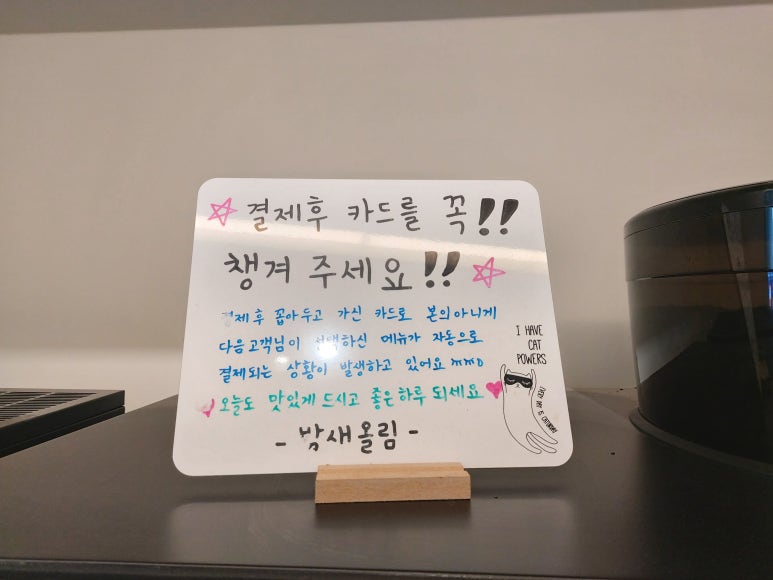 결제후 카드를 꼭!!
챙겨 주세요!!
결제 후 꼽아두고 가신 카드로 본의 아니게
다음 고객님이 선택하신 메뉴가 자동으로
결제되는 상황이 발생하고 있어요
오늘도 맛있게 드시고 좋은하루 되세요
- 밤새올림 -
I HAVE
CAT
POWERS